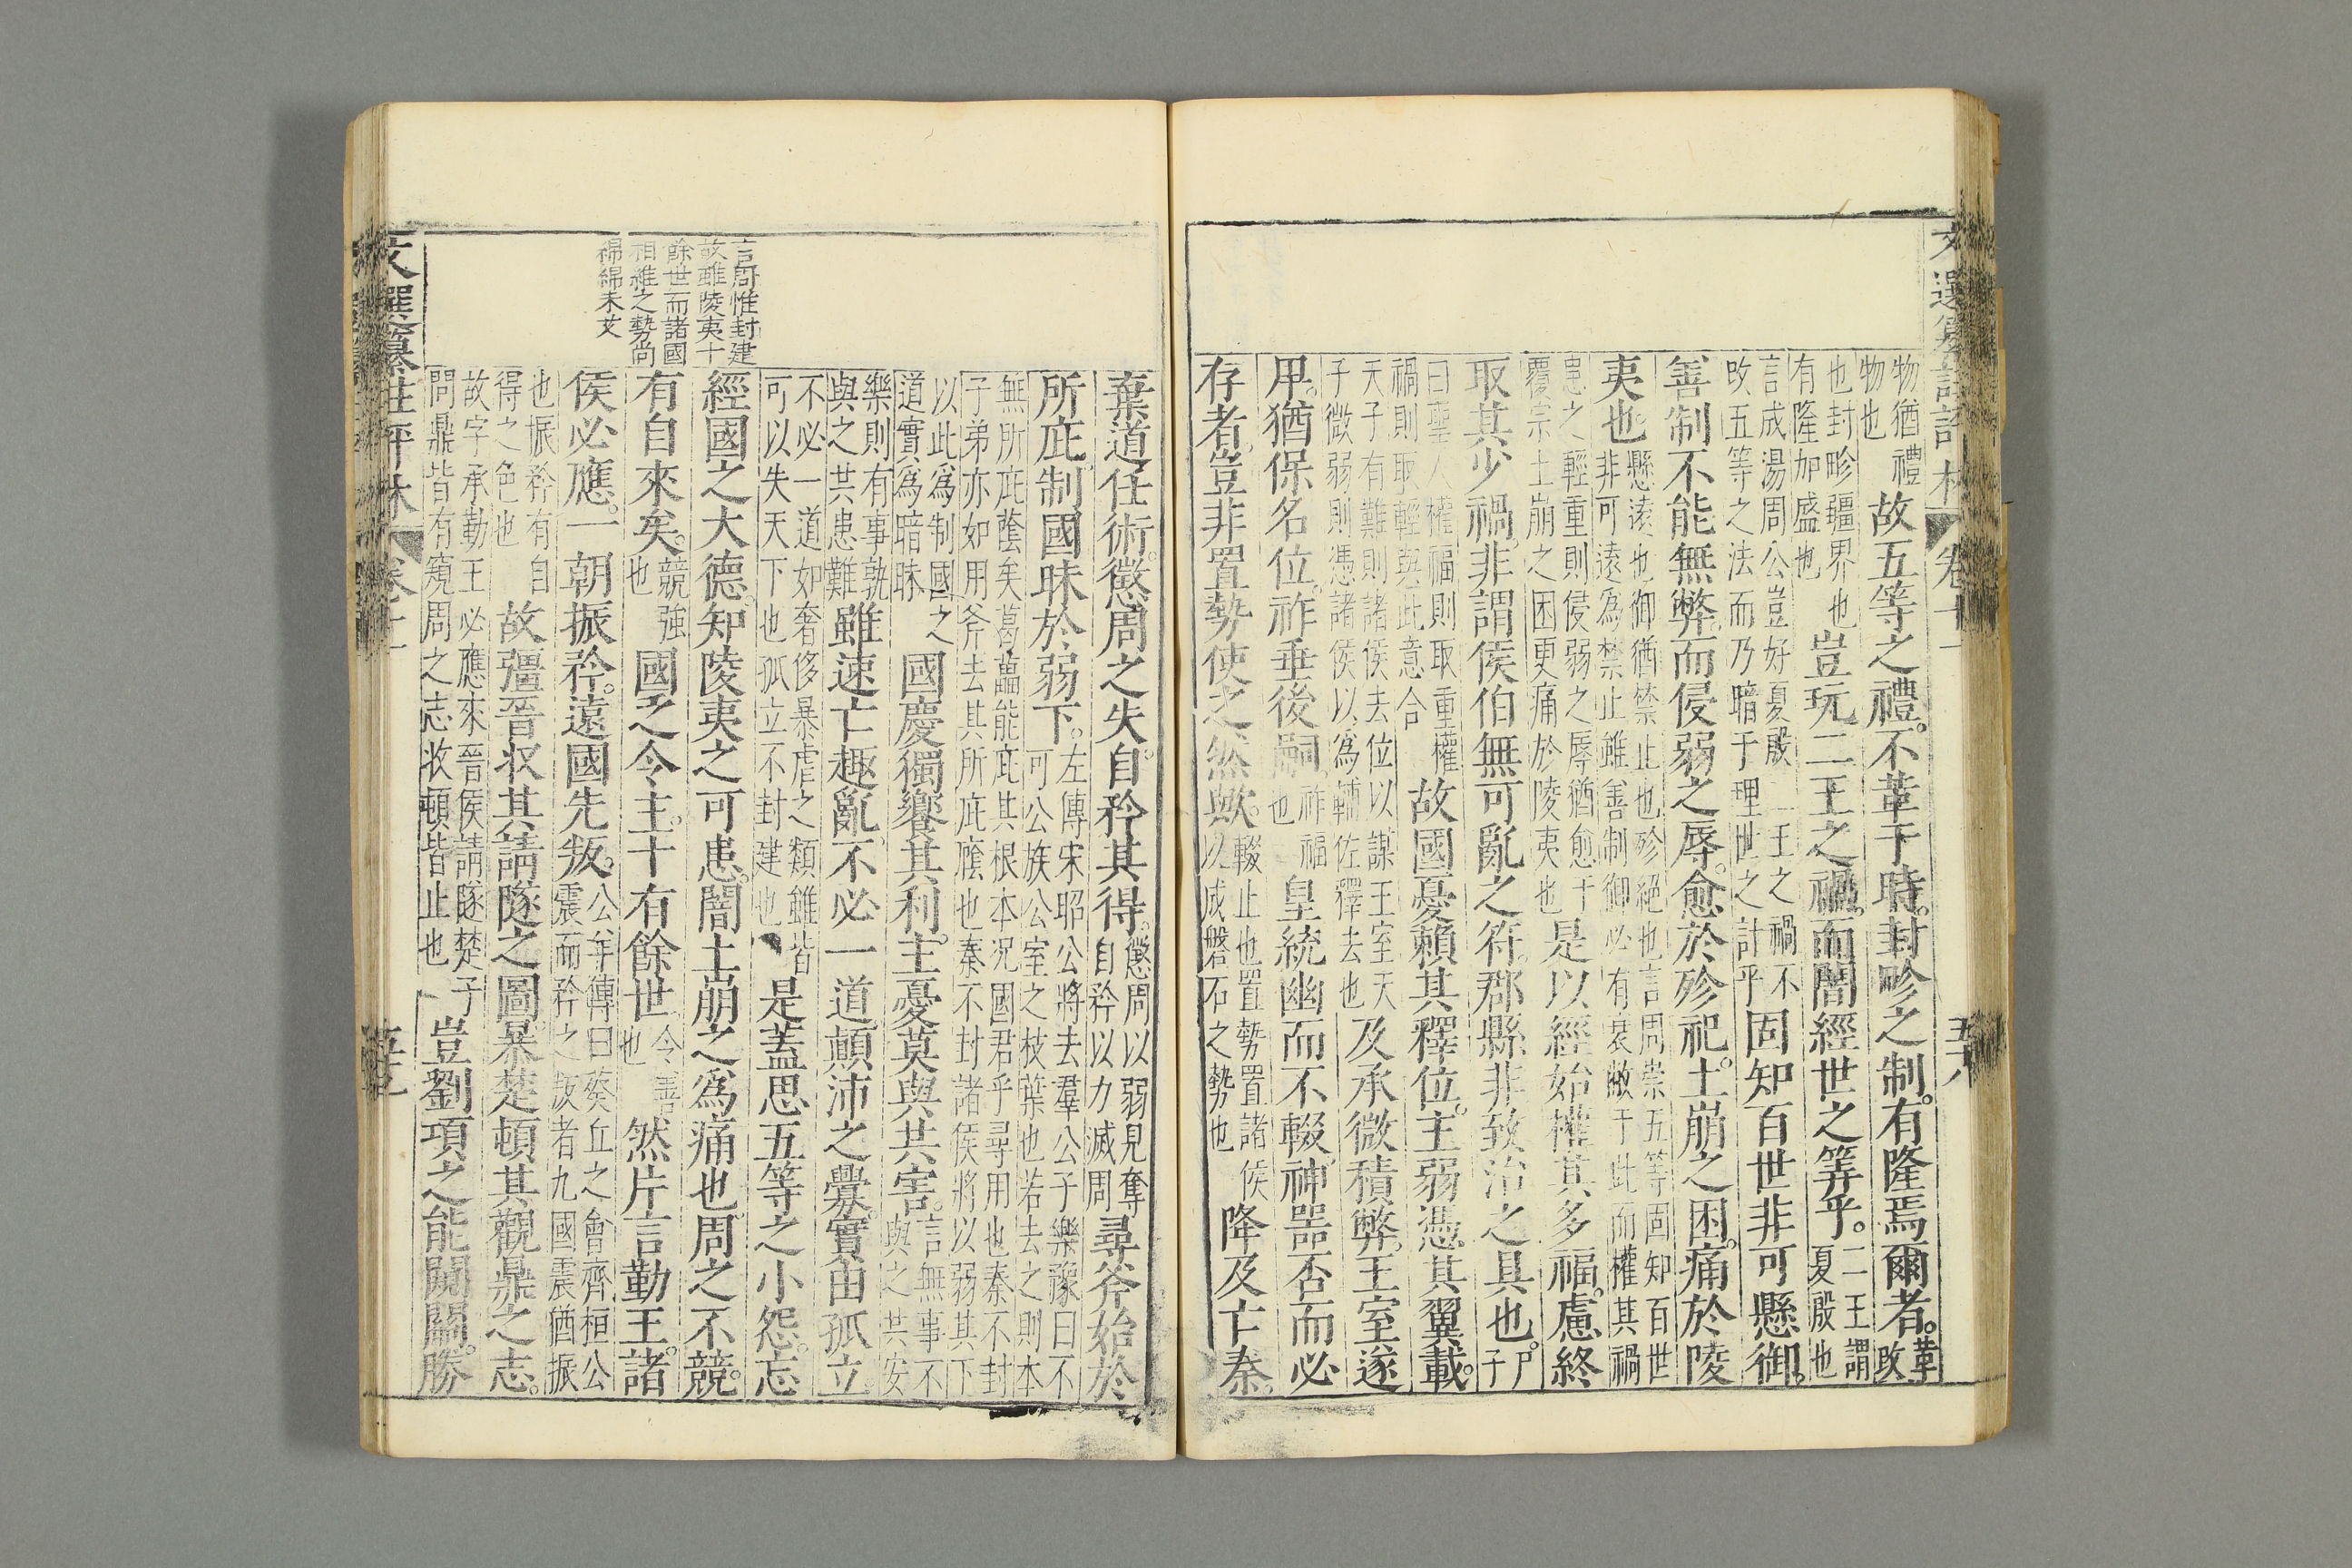 文選纂註評林 卷十一 五十八
物猶禮物也 故五等之禮。不革于時。封畛之制。有隆焉爾者。革改
也封畛疆界也有隆加盛也 豈玩二王之禍。而闇經世之筭乎。二王謂夏殷也
言成湯周公豈好夏殷二王之禍不改五等之法而乃暗于理世之計乎 固知百世非可懸御。
善制不能無弊。而侵弱之辱。愈於殄祀。土崩之困。痛於陵
夷也。懸遠也御猶禁止也殄絕也言周崇五等固知百世非可遠為禁止雖善制御必有衰敝于此而權其禍
患之輕重則侵弱之辱猶愈于覆宗土崩之困更痛於陵夷也 是以經始權其多福。慮終
取其少禍。非謂侯伯無可亂之符。郡縣非致治之具也。尸子
曰聖人權福則取重權禍則取輕與此意合 故國憂賴其釋位。主弱憑其翼載。
天子有難則諸侯去位以謀王室天子微弱則憑諸侯以為輔佐釋去也 及承微積弊。王室遂
卑。猶保名位。祚垂後嗣。祚福也 皇統幽而不輟。神器否而必
存者。豈非置勢使之然歟。輟止也置勢置諸侯以成磐石之勢也 降及亡秦。
棄道任術。懲周之失。自矜其得。懲周以弱見奪自矜以力滅周 尋斧始於
所庇。制國昧於弱下。左傳宋昭公將去羣公子樂豫曰不可公族公室之枝葉也若去之則本
無所庇蔭矣葛藟能庇其根本況國君乎尋用也秦不封子弟亦如用斧去其所庇廕也秦不封諸侯將以弱其下
以此為制國之道實為暗昧 國慶獨饗其利。主憂莫與共害。言無事不與之共安
樂則有事孰與之共患難 雖速亡趣亂。不必一道。顛沛之釁。實由孤立
不必一道如奢侈暴虐之類雖皆可以失天下也孤立不封建也 是蓋思五等之小怨。忘
言周惟封建
故雖陵夷十
餘世而諸國
相維之勢尚
綿綿未艾
經國之大德。知陵夷之可患。闇土崩之為痛也。周之不競。
有自來矣。競強也 國乏令主。十有餘世。令善也 然片言勤王。諸
侯必應。一朝振矜。遠國先叛。公羊傳曰葵丘之會齊桓公震而矜之叛者九國震猶振
也振矜有自得之色也 故彊晉收其請隧之圖。暴楚頓其觀鼎之志。
故字承勤王必應來晉侯請隧楚子問鼎皆有窺周之志收頓皆止也 豈劉項之能闚關。勝
文選纂註評林 卷十一 五十九